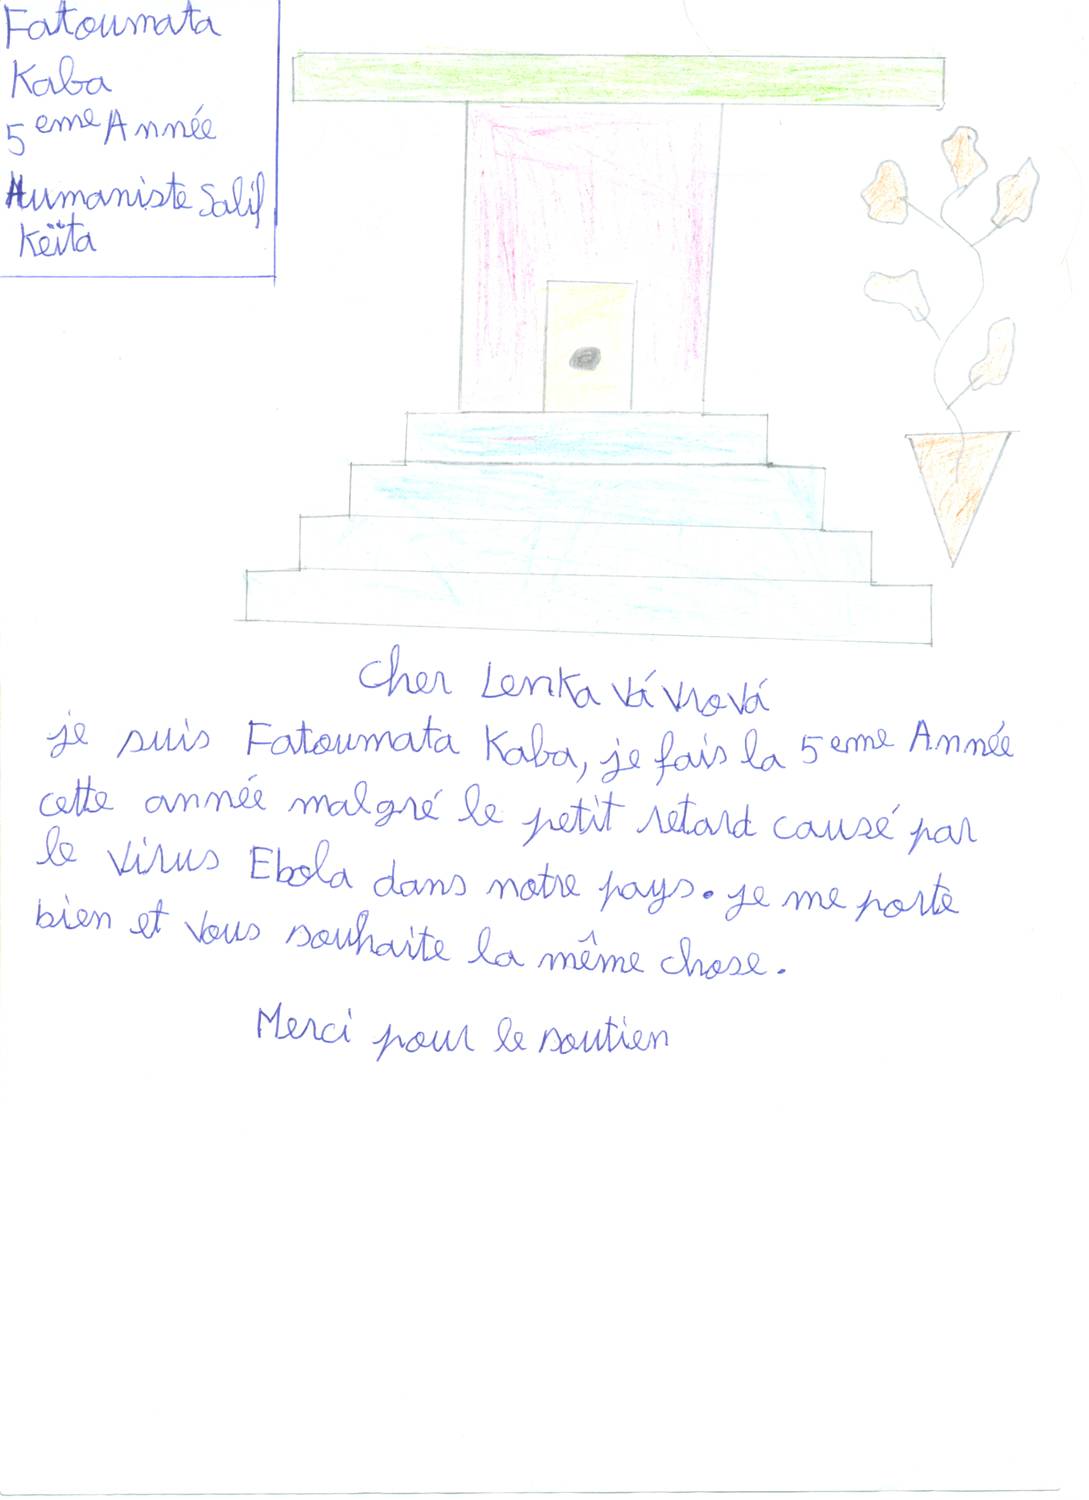 Fatoumata
Kaba
5eme Année
Humaniste Salif
Keïta
Cher Lenka Vávrová
je suis Fatoumata Kaba, je fais la 5eme Année
cette année malgré le petit retard causé par
le virus Ebola dans notre pays. je me porte
bien et vous souhaite la même chose.
Merci pour le soutien